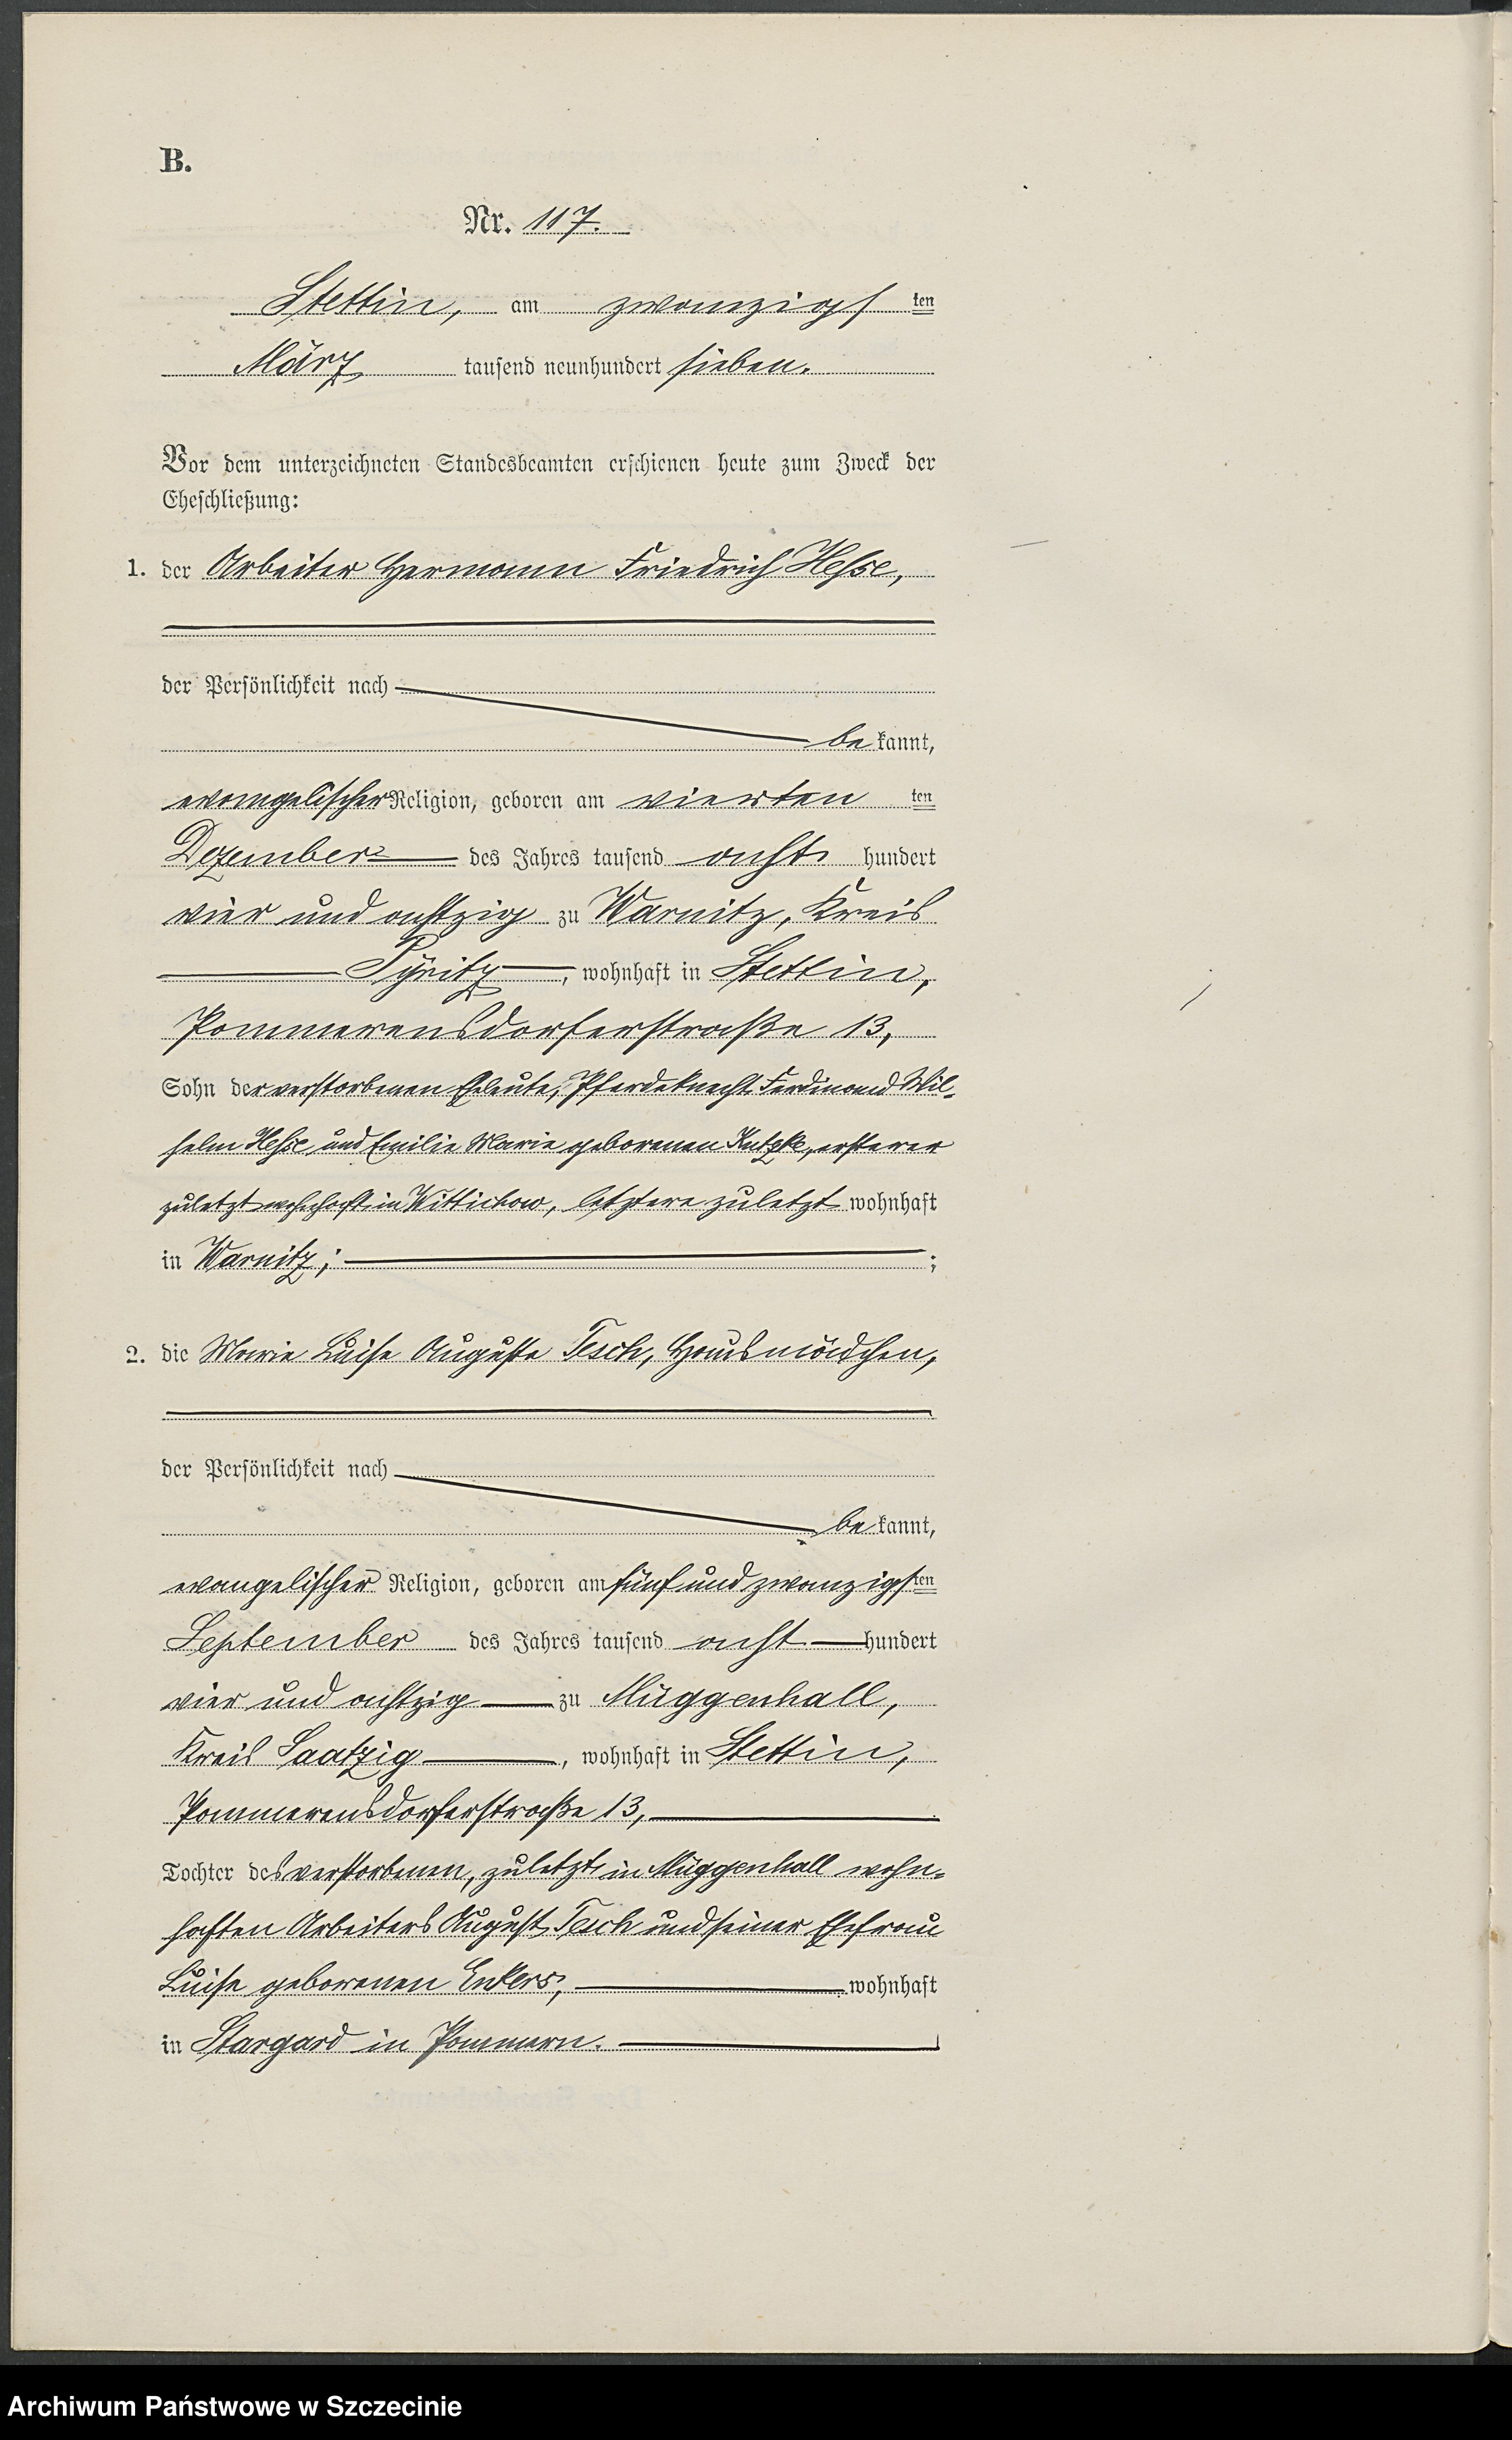 B.
Nr. 117.
Stettin, am zwanzigsten
März tausend neunhundert sieben.
Vor dem unterzeichneten Standesbeamten erschienen heute zum Zweck der
Eheschließung:
1. der Arbeiter Hermann Friedrich Hesse,
der Persönlichkeit nach
bekannt,
evangelischer Religion, geboren am vierten ten
Dezember des Jahres tausend acht hundert
vier und achtzig zu Warnitz, Kreis
Pyritz, wohnhaft in Stettin,
Pommerensdorferstraße 13,
Sohn der verstorbenen Eheleute, Pferdeknecht Ferdinand Wil-
helm Hesse und Emilie Marie geborenen Kutzke, ersterer
zuletzt wohnhaft in Wittichow, letztere zuletzt wohnhaft
in Warnitz; ;
2. die Marie Luise Auguste Tesch, Hausmädchen,
der Persönlichkeit nach
bekannt,
evangelischer Religion, geboren am fünf und zwanzigsten
September des Jahres tausend acht hundert
vier und achtzig zu Müggenhall,
Kreis Saatzig, wohnhaft in Stettin,
Pommerensdorferstraße 13,
Tochter des verstorbenen, zuletzt in Müggenhall wohn-
haften Arbeiters August Tesch und seiner Ehefrau
Luise geborenen Enkers, wohnhaft
in Stargard in Pommern.
Archiwum Państwowe w Szczecinie